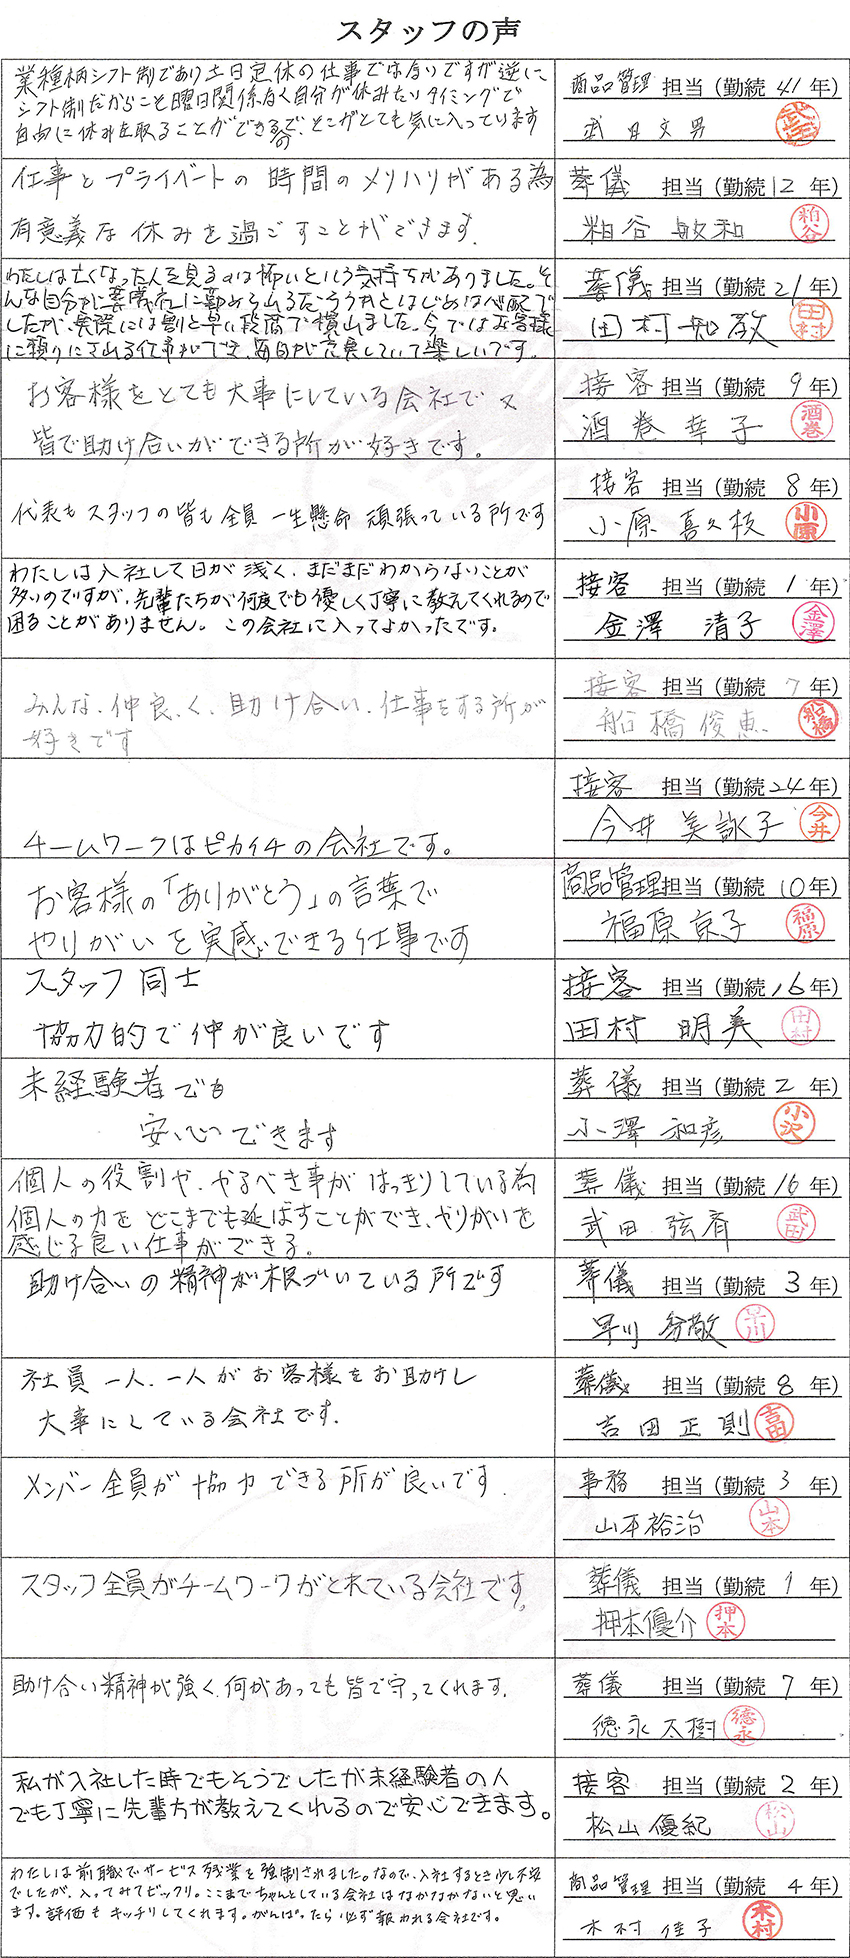 スタッフの声
業種柄シフト制であり土日定休の仕事ではないですが逆に
シフト制だからこそ曜日関係なく自分が休みたいタイミングで
自由に休みを取ることができるので、そこがとても気に入っています
商品管理 担当(勤続 41 年)
武田文男
武田
仕事とプライベートの時間のメリハリがある為
有意義な休みを過ごすことができます。
葬儀 担当(勤続 12 年)
粕谷 敏和
粕谷
わたしは亡くなった人を見るのは怖いという気持ちがありました。そ
んな自分が葬儀社に勤められるだろうかとはじめは心配で
したが、実際には割と早い段階で慣れました。今ではお客様
に頼りにされる仕事ができ、毎日が充実していて楽しいです。
葬儀 担当(勤続 21 年)
田村 知敬
田村
お客様をとても大事にしている会社で 又
皆で助け合いができる所が好きです。
接客 担当(勤続 9 年)
酒巻 幸子
酒巻
代表もスタッフの皆も全員 一生懸命 頑張っている所です
接客 担当(勤続 8 年)
小原 喜久枝
小原
わたしは入社して日が浅く、まだまだわからないことが
多いのですが、先輩たちが何度でも優しく丁寧に教えてくれるので
困ることがありません。この会社に入ってよかったです。
接客 担当(勤続 1 年)
金澤 清子
金澤
みんな、仲良く、助け合い、仕事をする所が
好きです
接客 担当(勤続 7 年)
船橋 俊恵
船橋
チームワークはピカイチの会社です。
接客 担当(勤続 24 年)
今井 美詠子
今井
お客様の「ありがとう」の言葉で
やりがいを実感できる仕事です
商品管理 担当(勤続 10 年)
福原 京子
福原
スタッフ同士
協力的で仲が良いです
接客 担当(勤続 16 年)
田村 明美
田村
未経験者でも
安心できます
葬儀 担当(勤続 2 年)
小澤 和彦
小沢
個人の役割や、やるべき事がはっきりしている為
個人の力をどこまでも延ばすことができ、やりがいを
感じる良い仕事ができる。
葬儀 担当(勤続 16 年)
武田 弦斉
武田
助け合いの精神が根づいている所です
葬儀 担当(勤続 3 年)
早川 敬
早川
社員一人、一人がお客様をお助けし
大事にしている会社です。
葬儀 担当(勤続 8 年)
吉田正則
吉田
メンバー全員が協力できる所が良いです。
事務 担当(勤続 3 年)
山本裕治
山本
スタッフ全員がチームワークがとれている会社です。
葬儀 担当(勤続 1 年)
押本優介
押本
助け合い精神が強く、何があっても皆で守ってくれます。
葬儀 担当(勤続 7 年)
徳永太樹
徳永
私が入社した時でもそうでしたが未経験者の人
でも丁寧に先輩方が教えてくれるので安心できます。
接客 担当(勤続 2 年)
松山優紀
松山
わたしは前職でサービス残業を強制されました。なので、入社するとき少し不安
でしたが、入ってみてビックリ。ここまでちゃんとしている会社はなかなかないと思い
ます。評価もキッチリしてくれます。がんばったら必ず報われる会社です。
商品管理 担当(勤続 4 年)
木村 佳子
木村